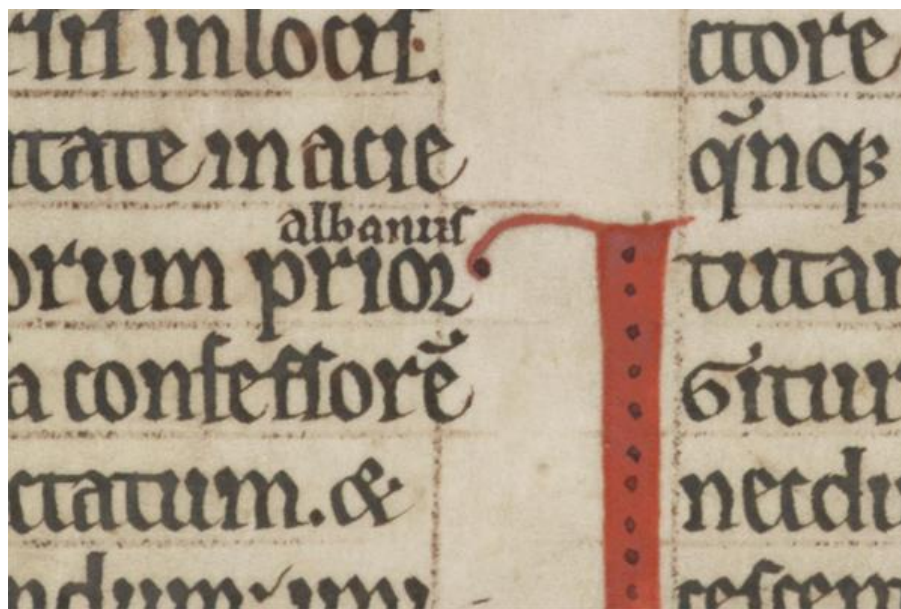 in locis.
tate in acie
albanus
orum prior
a confessorē
ctatum. &
ndum
ctore
q̄noqꝫ
tutar
Gitur
necdu
cescem